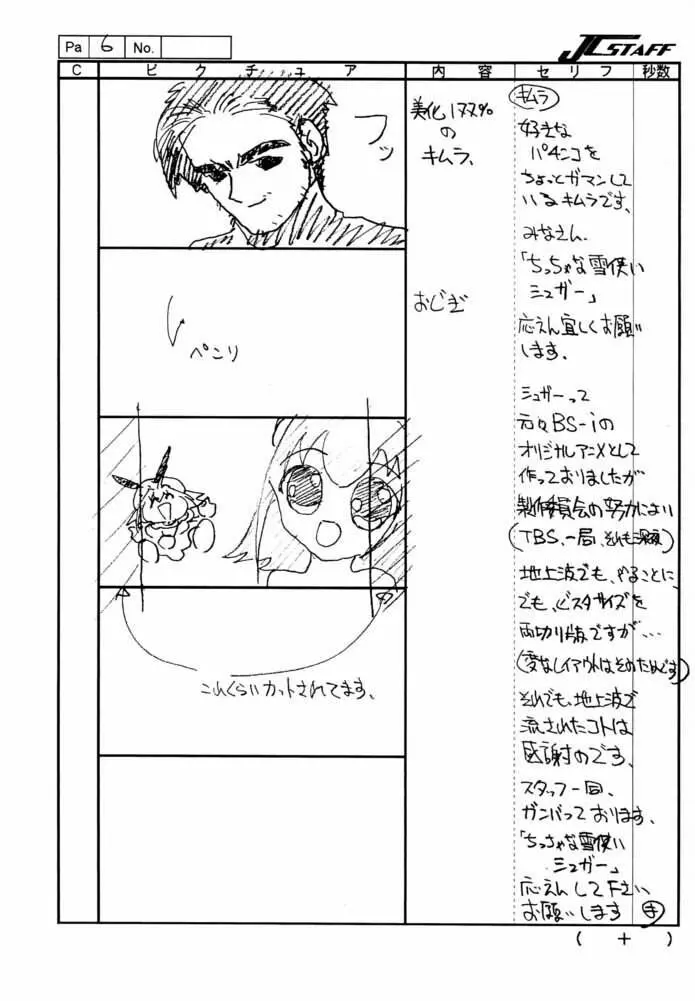 Pa 6 No.
J.C.STAFF
C ピクチュア 内容 セリフ 秒数
フッ
美化177%
の
キムラ、
キムラ
好きな
パチンコを
ちょっとガマンして
いるキムラです、
みなさん、
「ちっちゃな雪使い
シュガー」
応えん宜しくお願い
します、
おじぎ
ペコリ
シュガーって
元々BS-iの
オリジナルアニメとして
作っておりましたが
製作委員会の努力により
(TBS、一局、それも深夜)
地上波でも、やることに、
でも、ビスタサイズを
両切り版ですが…
(変なレイアウトはそのためです)
これくらいカットされてます、
それでも、地上波で
流されたコトは
感謝のです、
スタッフ一同、
ガンバっております、
「ちっちゃな雪使い
シュガー」
応えんして下さい
お願いします
( + )